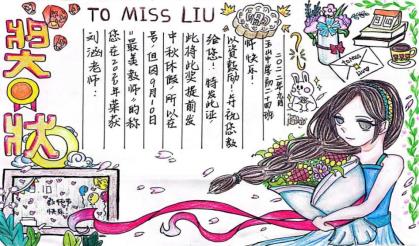 TO MISS LIU
奖状
刘涵老师：
您在2022年荣获
“最美教师”的称
号，但因9月10日
中秋休假，所以在
此将此奖提前发
给您！特发此证，
以资鼓励！并祝您教
师快乐！
二〇二二年九月
教师节
快乐